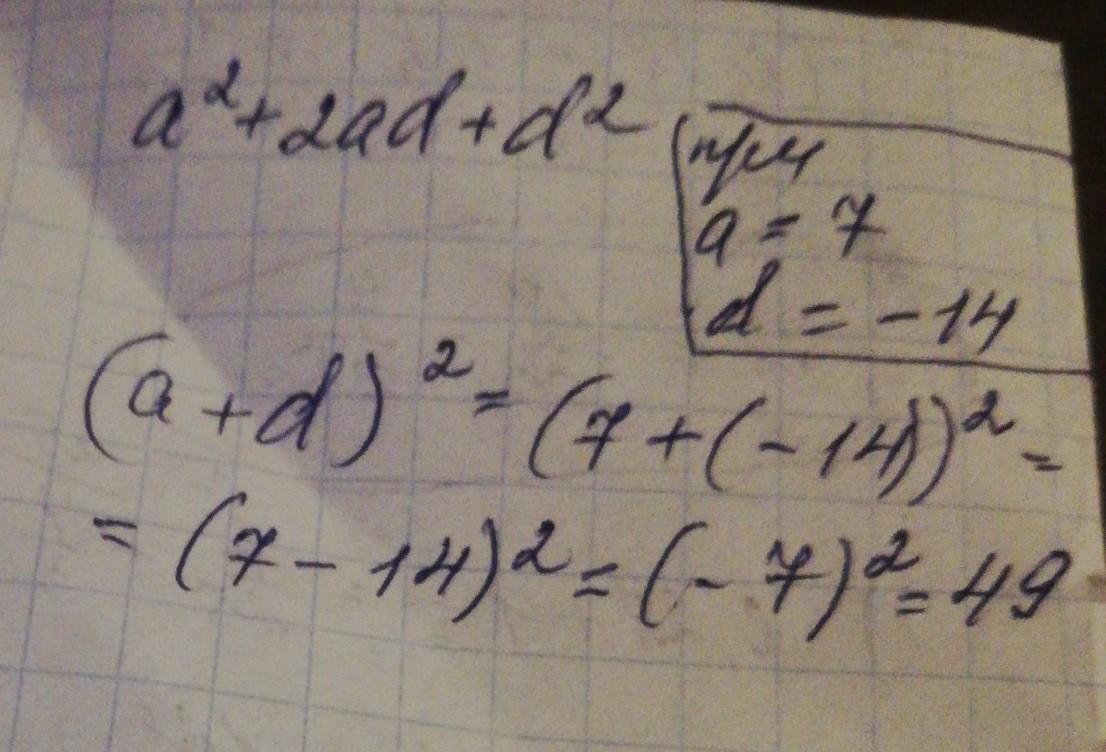 a² + 2ad + d²
при
a = 7
d = -14
(a + d)² = (7 + (-14))² =
= (7 - 14)² = (-7)² = 49